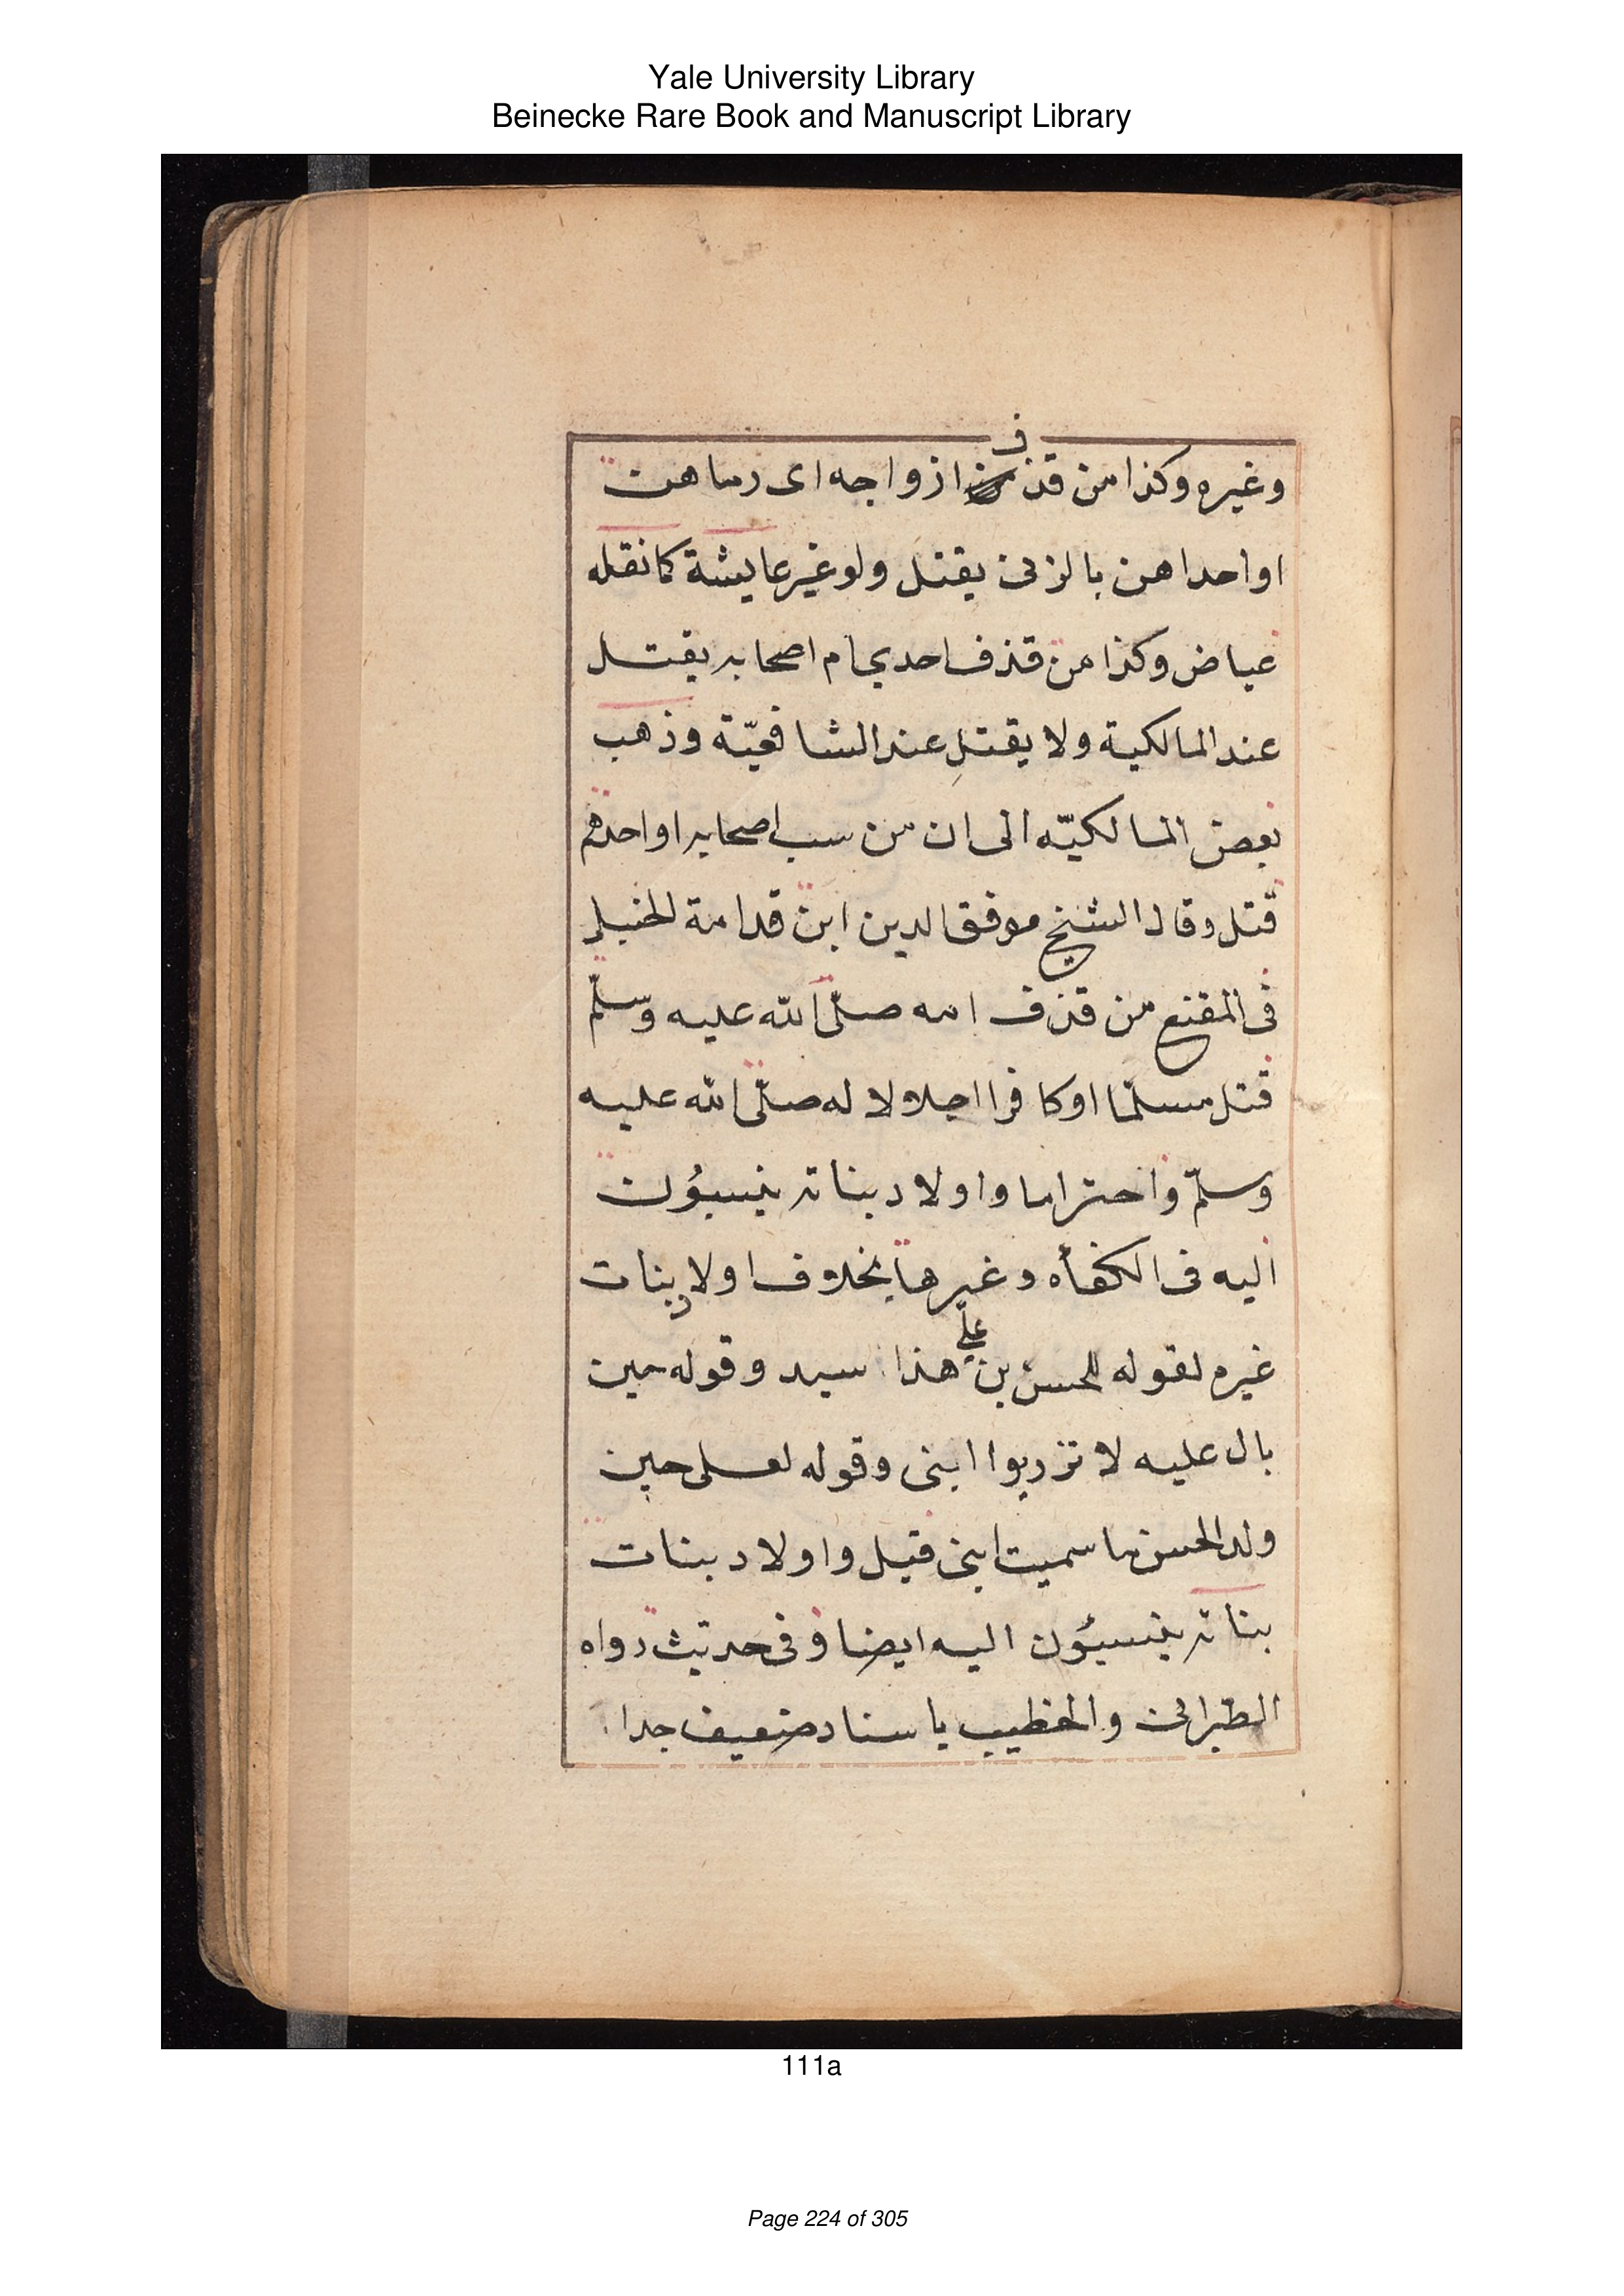 Yale University Library
Beinecke Rare Book and Manuscript Library
وغيره وكذا من قذف ازواجه اى رماهن
او احداهن بالزنى يقتل ولو غير عايشة كما نقله
عياض وكذا من قذف احدى ام اصحابه يقتل
عند المالكية ولا يقتل عند الشافعيّة وذهب
بعض المالكيّه الى ان من سب اصحابه او احدهم
قتل وقال الشيخ موفق الدين ابن قدامة الحنبلى
فى المقنع من قذف امه صلّى الله عليه وسلّم
قتل مسلمّا او كافرا اجلالا له صلّى الله عليه
وسلّم واحتراما واولاد بناته ينسبوُن
اليه فى الكفأه وغيرها بخلاف اولاد بنات
غيره لقوله للحسن بن علي هذا سيد وقوله حين
بال عليه لا تزربوا ابنى وقوله لعلى حين
ولد الحسن ما سميت ابنى قيل واولاد بنات
بناته ينسبؤن اليه ايضا وفى حديث رواه
الطبرانى والخطيب باسناد ضعيف جدا
111a
Page 224 of 305